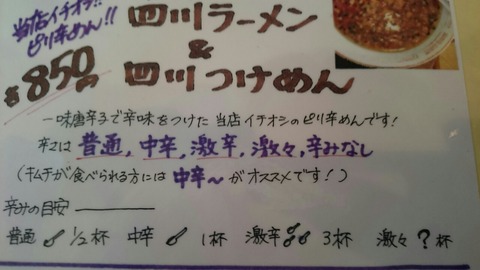 当店イチオシ!!
ピリ辛めん!!
四川ラーメン
&
各850円
四川つけめん
一味唐辛子で辛味をつけた 当店イチオシのピリ辛めんです!
辛さは 普通, 中辛, 激辛, 激々, 辛みなし
(キムチが食べられる方には 中辛〜 がオススメです!)
辛みの目安
普通 1/2杯 中辛 1杯 激辛 3杯 激々 ?杯